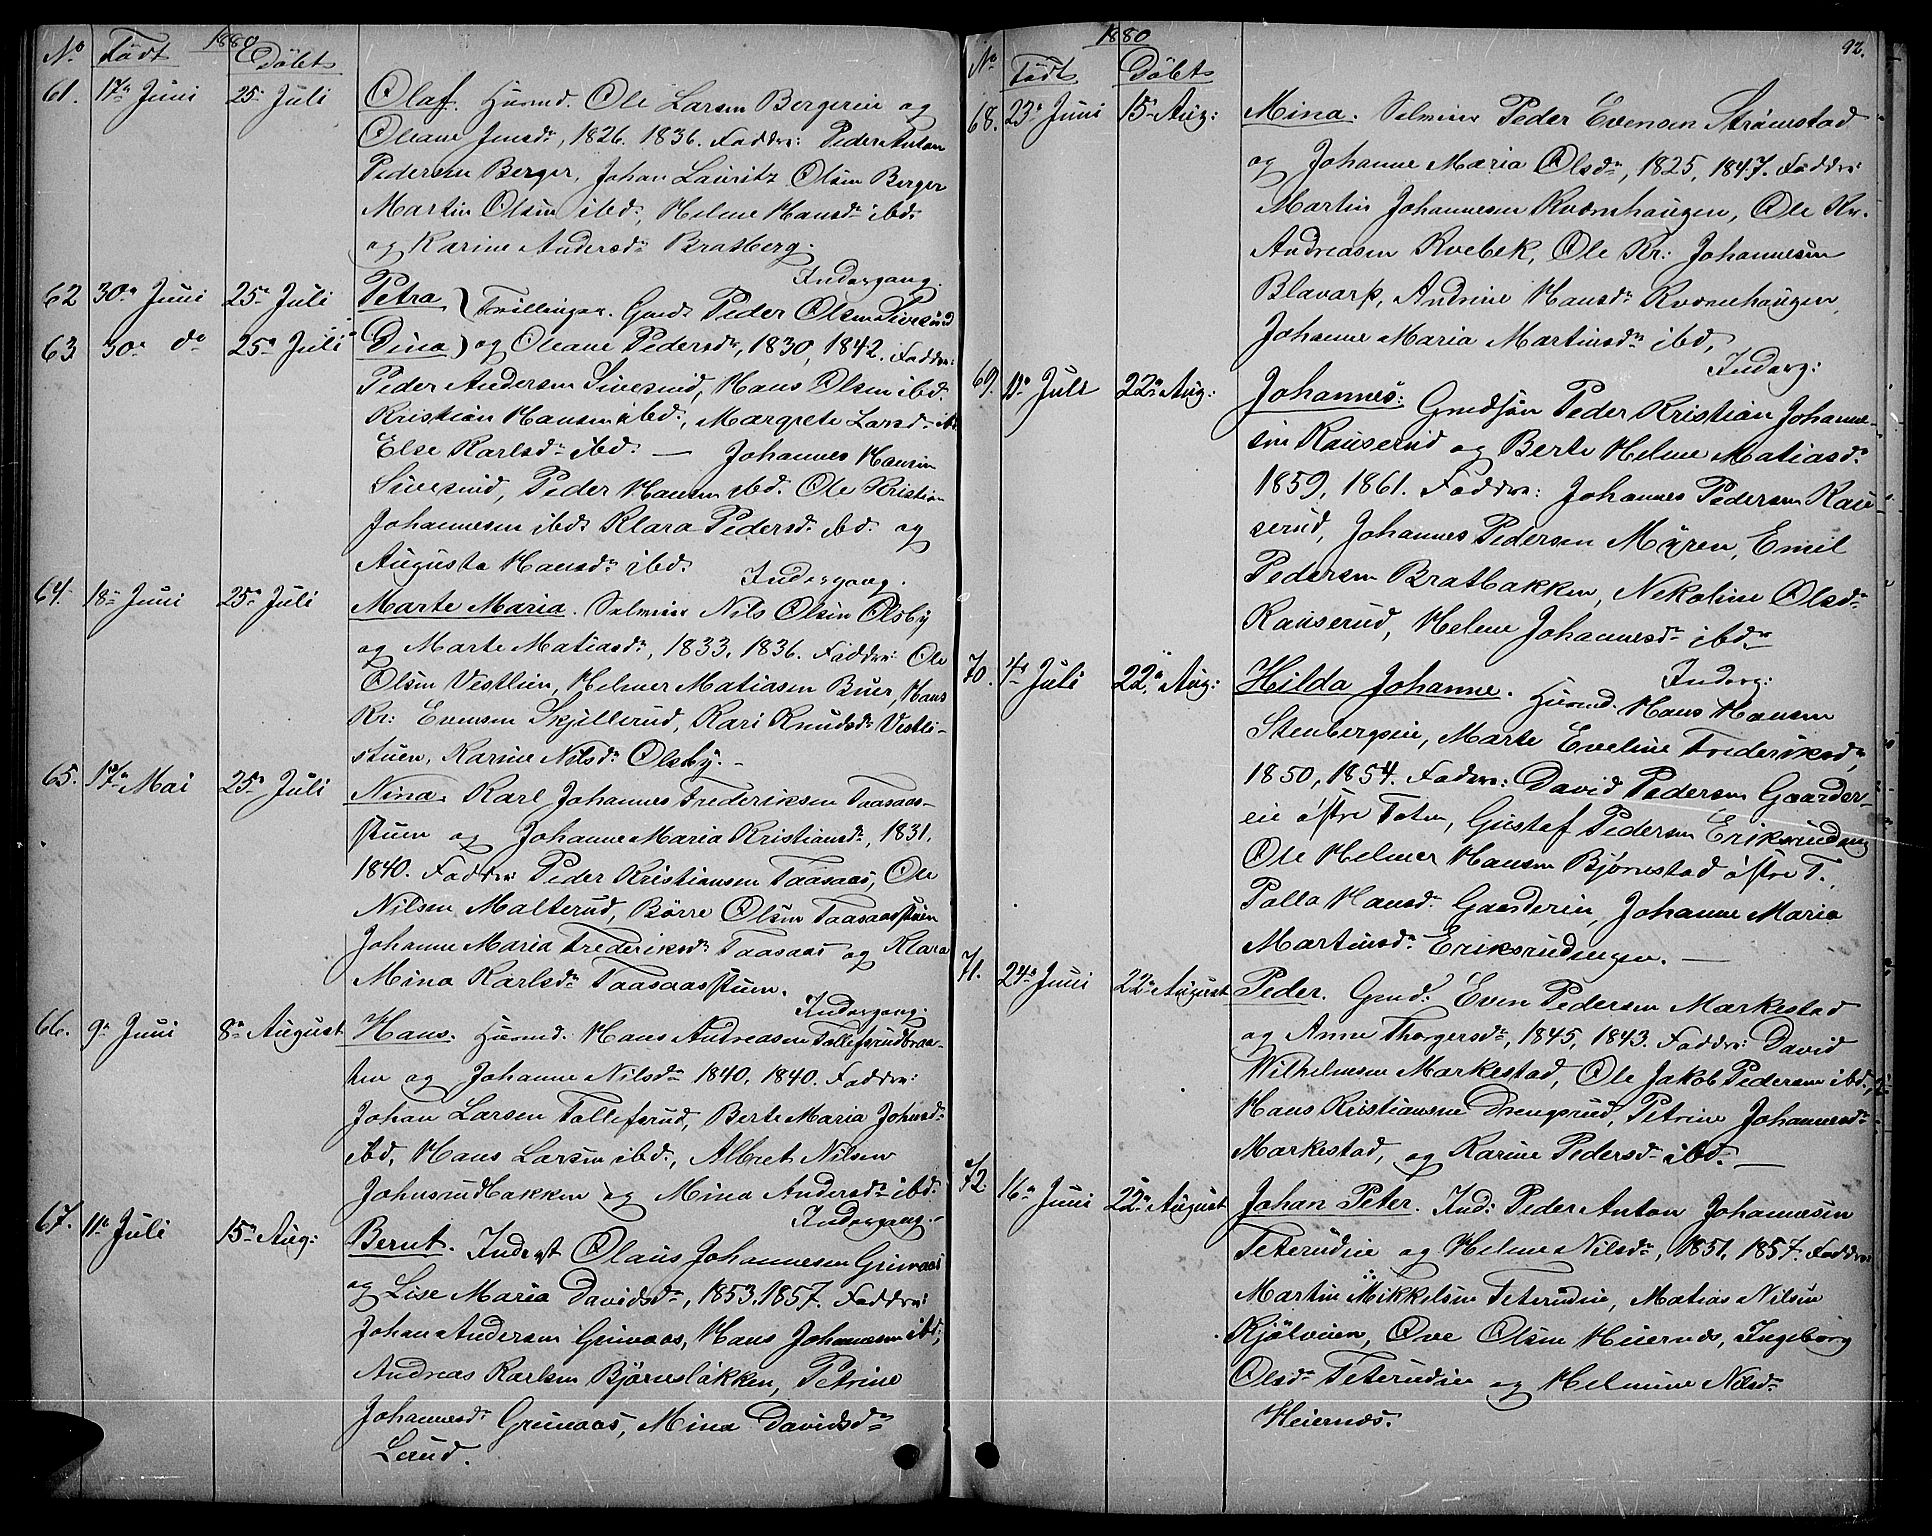 1880
No Födt Döbt
61. 17de Juni 25de Juli Olaf. Husmd. Ole Larsen Bergereie og
Oleane Jensdr, 1826. 1836. Faddre: Peder Anton
Pedersen Berger, Johan Lauritz Olsen Berger
Martin Olsen ibd., Helene Hansdr ibd.
og Karine Andersdr Bratberg.
Indergang.
62 30de Juni 25de Juli Petra } Tvillinger. Gmd. Peder Olsen Sivesind
63 30de do 25de Juli Dina } og Oleane Pedersdr, 1830, 1842. Faddre:
Peder Andersen Sivesind, Hans Olsen ibd.
Kristian Hansen ibd., Margrete Larsdr ibd.
Else Karlsdr ibd. — Johannes Hansen
Sivesind, Peder Hansen ibd. Ole Kristian
Johannesen ibd. Klara Pedersdr ibd. og
Augusta Hansdr ibd.
Indergang.
64. 18de Juni 25de Juli Marte Maria. Selveier Nils Olsen Olsby
og Marte Matiasdr, 1833, 1836. Faddre: Ole
Olsen Vestlien, Helmer Matiasen Buer, Hans
Kr: Evensen Skjellerud, Kari Knudsdr Vestli-
stuen, Karine Nilsdr Olsby. -
65. 17de Mai 25de Juli Nina. Karl Johannes Frederiksen Taasaas-
stuen og Johanne Maria Kristiansdr, 1831.
1840. Faddre: Peder Kristiansen Taasaas, Ole
Nilsen Malterud, Börre Olsen Taasaasstuen
Johanne Maria Frederiksdr Taasaas og Klara
Mina Karlsdr Taasaasstuen.
Indergang.
66. 9de Juni 8de August Hans. Husmd. Hans Andreasen Tollefsrudbraa-
ten og Johanne Nilsdr 1840, 1840. Faddre:
Johan Larsen Tollefsrud, Berte Maria Johnsdr
ibd, Hans Larsen ibd., Albret Nilsen
Johnsrudbakken og Mina Andersdr ibd.
Indergang.
67. 11de Juli 15de Aug: Bernt. Inderst Olaus Johannesen Grinaas
og Lise Maria Davidsdr, 1853, 1857. Faddre:
Johan Andersen Grinaas, Hans Johannesen ibd.,
Andreas Karlsen Björnslökken, Petrine
Johannesdr Grinaas, Mina Davidsdr
Lerud.
92.
1880
No Födt Döbt
68. 23de Juni 15de Aug: Mina. Selveier Peder Evensen Strömstad
og Johanne Maria Olsdr, 1825, 1847. Faddre:
Martin Johannesen Kværnhaugen, Ole Kr.
Andreasen Kvebek, Ole Kr: Johannesen
Blavarp, Andrine Hansdr Kværnhaugen,
Johanne Maria Martinsdr ibd,
Inderg:
69. 11de Juli 22de Aug: Johannes: Gmdsön Peder Kristian Johanne-
sen Rauserud og Berte Helene Matiasdr
1859, 1861. Faddre: Johannes Pedersen Rau-
serud, Johannes Pedersen Mæren, Emil
Pedersen Bratbakken, Nekoline Olsdr
Rauserud, Helene Johannesdr ibd.
Inderg:
70. 4de Juli 22de Aug: Hilda Johanne. Husmd. Hans Hansen
Stenbergseie, Marte Eveline Frederiksdr,
1850, 1854. Faddre: David Pedersen Gaarder-
eie östre Toten, Gustaf Pedersen Eriksrudeng
Ole Helmer Hansen Björnstad östre T.,
Palla Hansdr Gaardereie, Johanne Maria
Martinsdr Eriksrudengen. —
71. 24de Juni 22de August Peder. Gmd: Even Pedersen Markestad
og Anne Thorgersdr, 1845, 1843. Faddre: David
Wilhelmsen Markestad, Ole Jakob Pedersen ibd.,
Hans Kristiansen Drengsrud, Petrine Johannesdr
Markestad, og Karine Pedersdr ibd. —
72 16de Juni 22de August Johan Peter. Ind: Peder Anton Johannesen
Teterudeie og Helene Nilsdr, 1851, 1857. Faddre:
Martin Mikkelsen Teterudeie, Matias Nilsen
Kjölveien, Ove Olsen Heiernæs, Ingeborg
Olsdr Teterudeie og Helmine Nilsdr
Heiernæs.